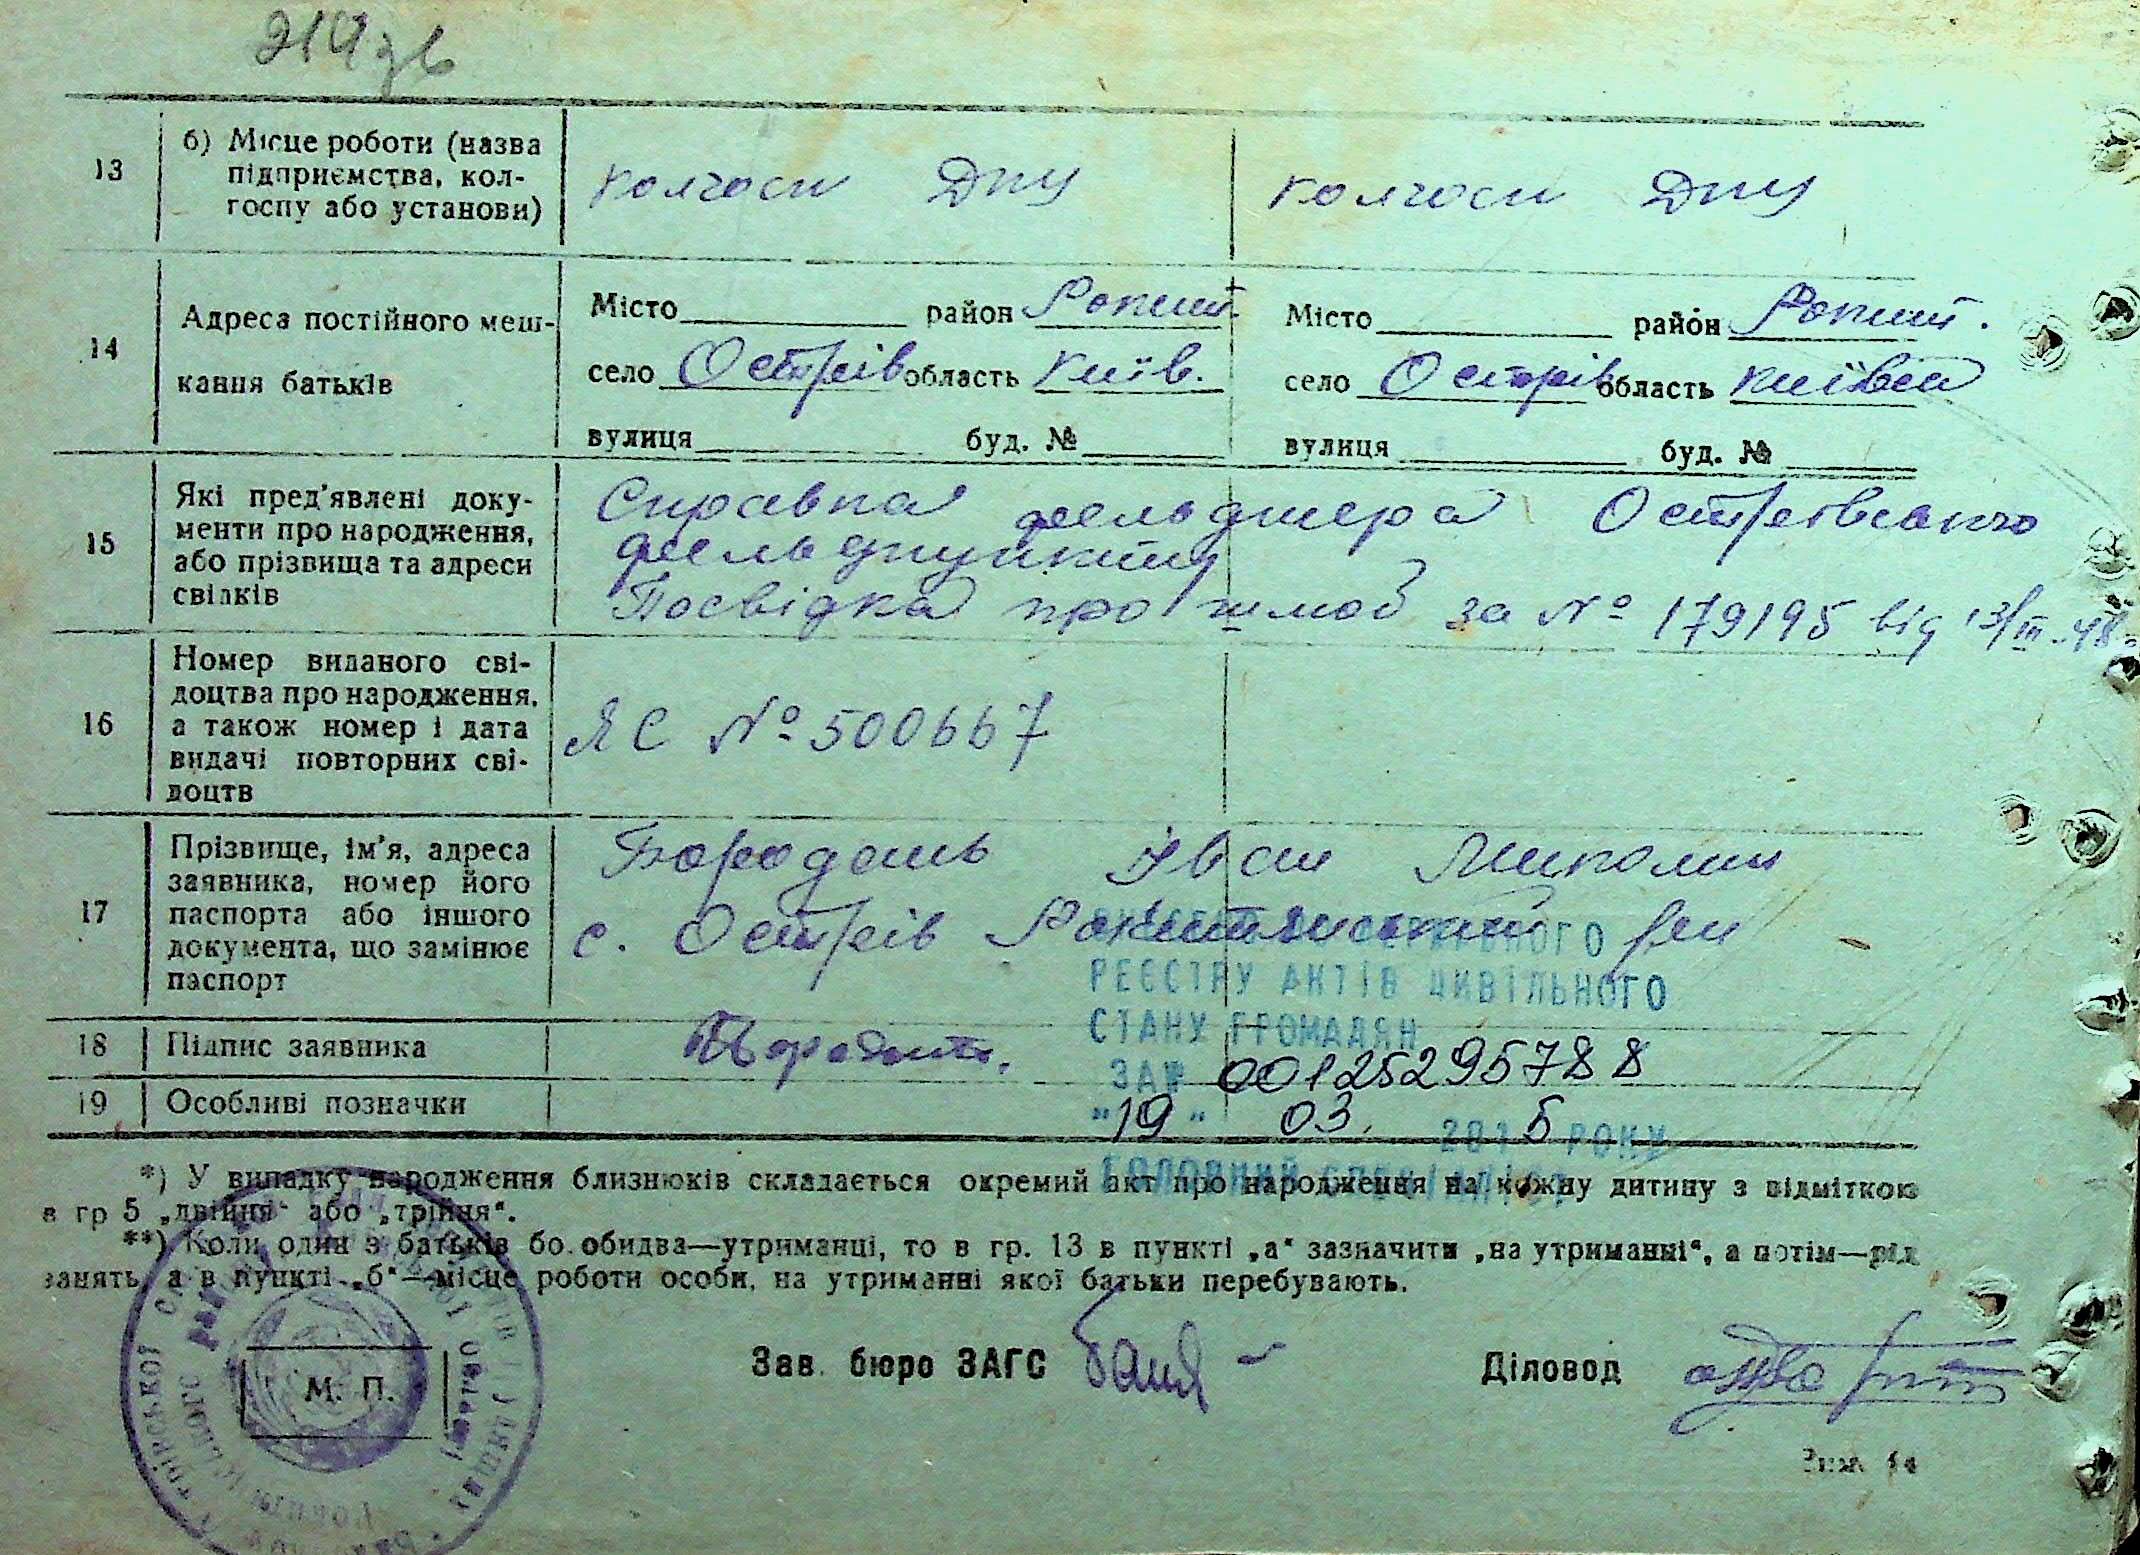 219 зв
13 б) Місце роботи (назва підприємства, колгоспу або установи) колгосп ДПУ колгосп ДПУ
14 Адреса постійного мешкання батьків
Місто район Рокит. Місто район Рокит.
село Острів область Київ. село Острів область Київськ
вулиця буд. № вулиця буд. №
15 Які пред'явлені документи про народження, або прізвища та адреси свідків
Справка фельдшера Острівського
фельдпункту
Посвідка про шлюб за № 179195 від 13/III-48.
16 Номер виданого свідоцтва про народження, а також номер і дата видачі повторних свідоцтв
ЯС № 500667
17 Прізвище, ім'я, адреса заявника, номер його паспорта або іншого документа, що замінює паспорт
Бородань Іван Микол
с. Острів Рокитнянський р-н
ДЕРЖАВНОГО
РЕЄСТРУ АКТІВ ЦИВІЛЬНОГО
СТАНУ ГРОМАДЯН
18 Підпис заявника
ЗА № 00125295788
19 Особливі позначки
"19" 03. 2015 РОКУ
ГОЛОВНИЙ СПЕЦІАЛІСТ
*) У випадку народження близнюків складається окремий акт про народження на кожну дитину з відміткою
в гр 5 „двійня" або „трійня".
**) Коли один з батьків бо обидва—утриманці, то в гр. 13 в пункті „а" зазначити „на утриманні", а потім—рід
занять, а в пункті „б"—місце роботи особи, на утриманні якої батьки перебувають.
М. П.
Зав. бюро ЗАГС
Діловод